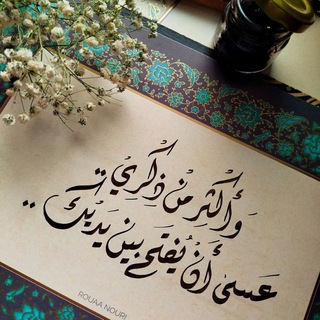 وَأَكْثِرْ مِنْ ذِكْرِي..
عَسَىٰ أَنْ يُفْتَحَ بَيْنَ يَدَيْكَ..
ROUAA NOURI